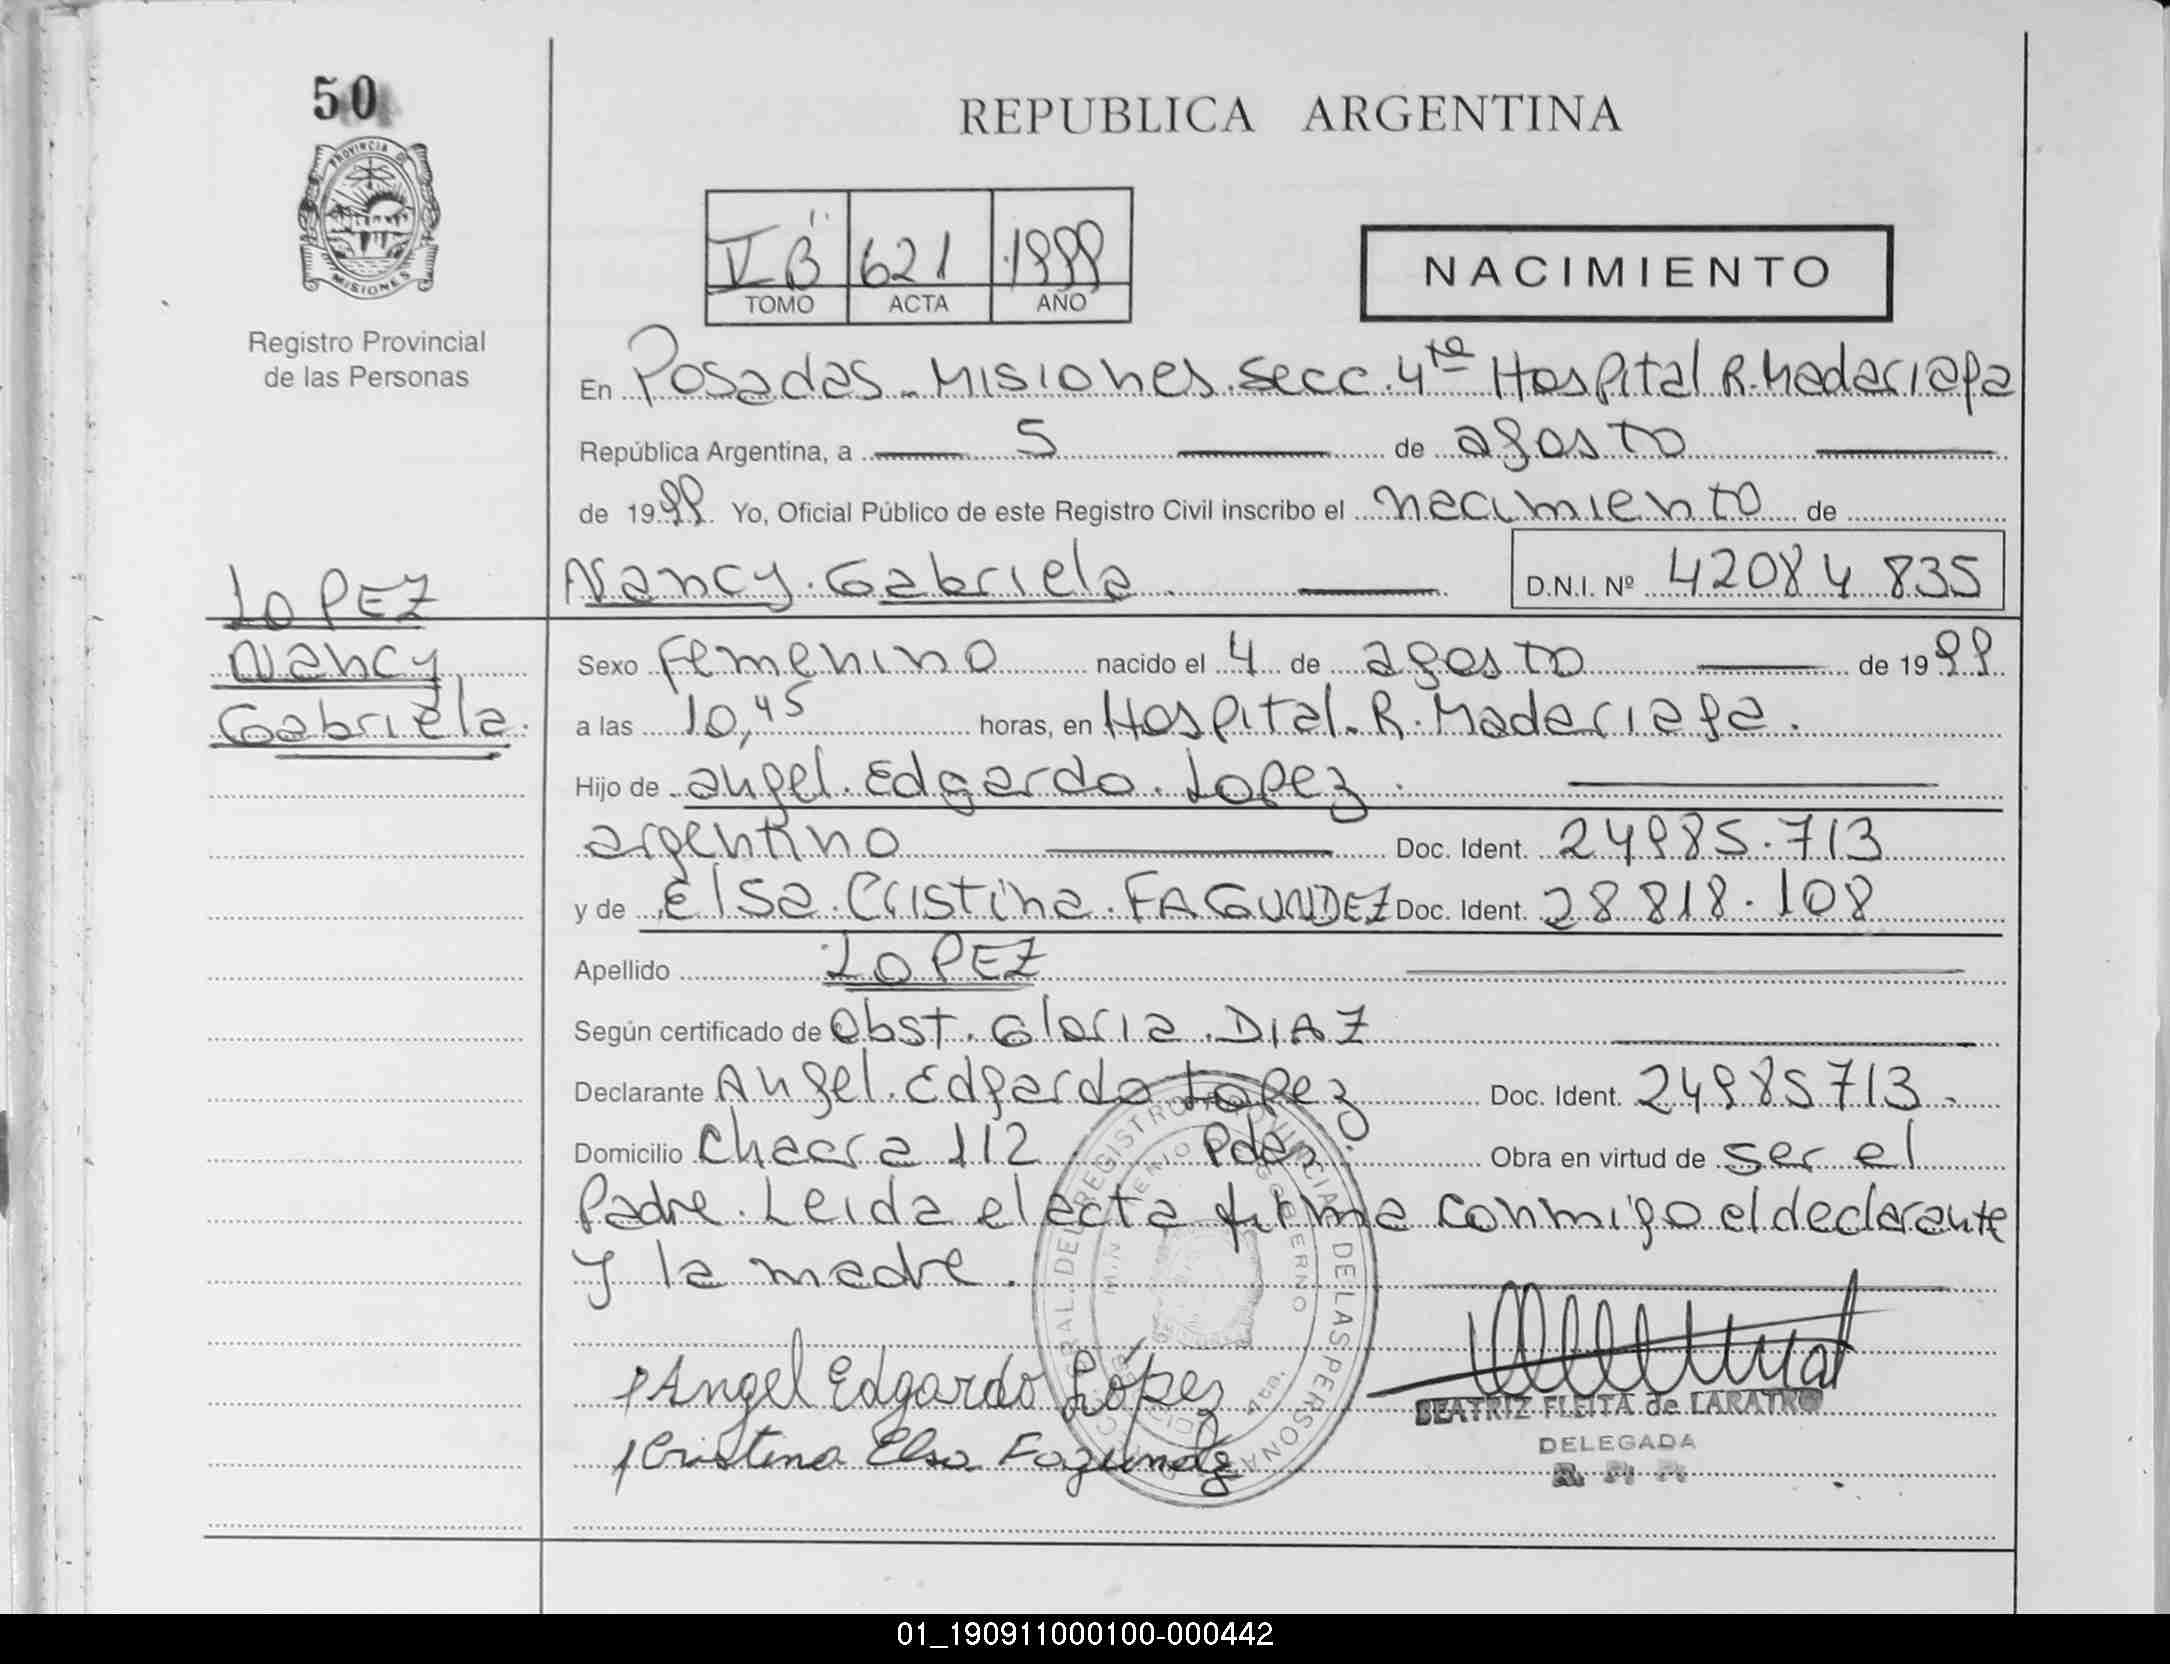 50
REPUBLICA ARGENTINA
PROVINCIA DE
MISIONES
Registro Provincial
de las Personas
V "B" 621 1999
TOMO ACTA AÑO
NACIMIENTO
En Posadas - Misiones. Secc. 4ta Hospital R. Madariaga
República Argentina, a 5 de agosto
de 1999 Yo, Oficial Público de este Registro Civil inscribo el nacimiento de
Nancy. Gabriela D.N.I. Nº 42084835
LOPEZ
Nancy
Gabriela.
Sexo Femenino nacido el 4 de agosto de 1999
a las 10,45 horas, en Hospital. R. Madariaga.
Hijo de angel. Edgardo. Lopez.
argentino Doc. Ident. 24985.713
y de Elsa. Cristina. FAGUNDEZ Doc. Ident. 28818.108
Apellido LOPEZ
Según certificado de Obst. Gloria. DIAZ
Declarante Angel. Edgardo Lopez Doc. Ident. 24985713.
Domicilio Chacra 112 Pdas. Obra en virtud de ser el
Padre. Leida el acta firma conmigo el declarante
y la madre.
Angel Edgardo López
Cristina Elsa Fagundez
BEATRIZ FLEITA de LARATRO
DELEGADA
01_190911000100-000442